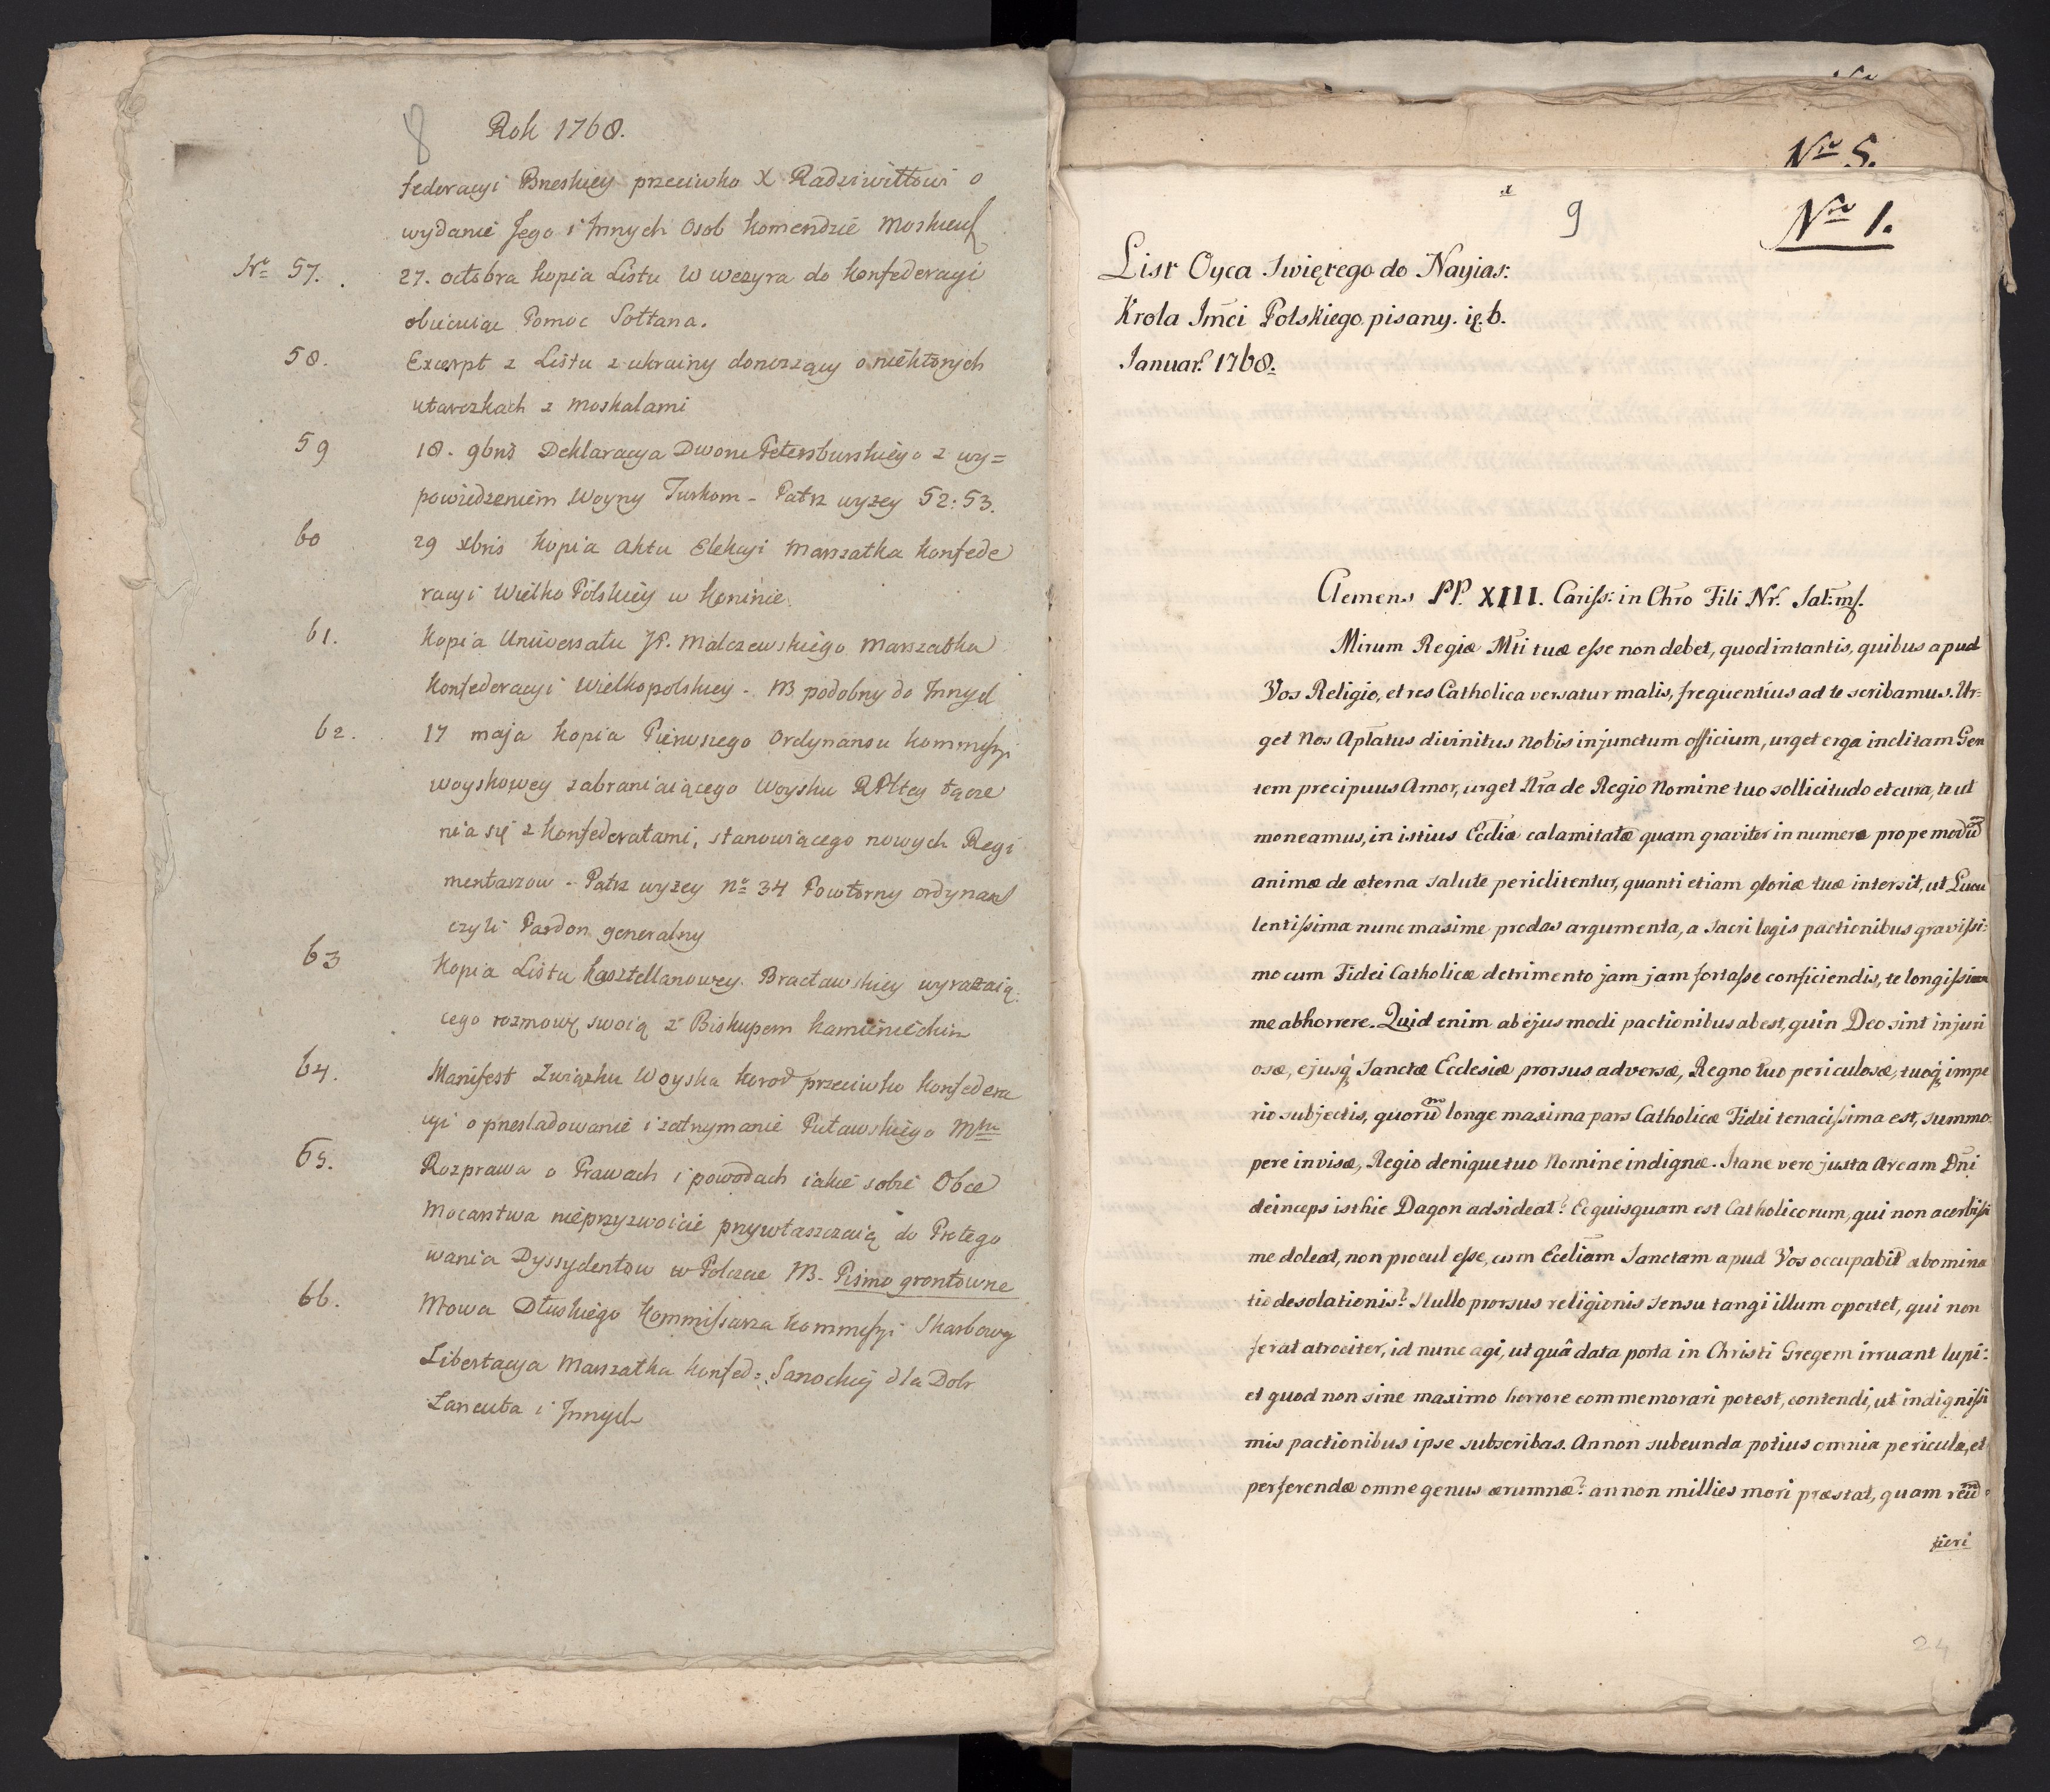 8
Rok 1768.
federacyi Brzeskiey przeciwko X Radziwiłłowi o
wydanie Jego i Innych Osob Komendzie Moskiews
Nº 57. 27. octobra kopia Listu W wezyra do konfederacyi
obiecuiąc Pomoc Sołtana.
58. Excerpt z Listu z ukrainy donoszący o niektorych
utarczkach z Moskalami
59 18. 9bris Deklaracya Dworu Petersburskiego z wy=
powiedzeniem Woyny Turkom - Patrz wyzey 52: 53.
60 29 xbris kopia Aktu Elekcyi Marszałka Konfede
racyi Wielko Polskiey w Koninie.
61. kopia Uniwersału JP. Malczewskiego Marszałka
Konfederacyi Wielkopolskiey - NB podobny do Innych
62. 17 maja kopia Pierwszego Ordynansu Kommissyi
woyskowey zabraniaiącego Woysku RPltey łącze
nia się z Konfederatami, stanowiącego nowych Regi
mentarzow - Patrz wyzey nº 34 Powtorny ordynans
czyli Pardon generalny
63 Kopia Listu kasztellanowey Bracławskiey wyrazaią:
cego rozmowę swoią z Biskupem kamienieckim
64. Manifest Związku Woyska koron przeciwko konfedera
cyi o przesladowanie i zatrzymanie Puławskiego Mka
65. Rozprawa o Prawach i powodach iakie sobie Obce
Mocarstwa nieprzyzwoicie przywłaszczaią do Protego
wania Dyssydentow w Polszcze NB - Pismo grontowne
66. Mowa Dłuskiego Kommissarza Kommissyi Skarbowy
Libertacya Marszałka konfed: Sanockiey dla Dobr
Łancuta i Innych
Nro 5.
x
9
Nro 1.
List Oyca Swiętego do Nayias:
Krola Jmci Polskiego pisany. ię. 6.
Januar. 1768.
Clemens PP. XIII. Cariss: in Chro Fili Nr. Sal: ms.
Mirum Regiæ Mti tuæ esse non debet, quod in tantis, quibus apud
Vos Religio, et res Catholica versatur malis, frequentius ad te scribamus. Ur=
get Nos Aplatus divinitus Nobis injunctum officium, urget erga inclitam Gen
tem precipuus Amor, urget Nra de Regio Nomine tuo sollicitudo et cura, te ut
moneamus, in istius Ecdiæ calamitatæ quam graviter in numeræ prope modum
animæ de æterna salute periclitentur, quanti etiam gloriæ tuæ intersit, ut Lucu
lentissima nunc maxime prodas argumenta, a sacri legis pactionibus gravissi:
mo cum Fidei Catholicæ detrimento jam jam fortasse conficiendis, te longissi
me abhorrere. Quid enim ab ejusmodi pactionibus abest, quin Deo sint injuri
osæ, ejusq́ Sanctæ Ecclesiæ prorsus adversæ, Regno tuo periculosæ, tuoq́ impe
rio subjectis, quorum longe maxima pars Catholicæ Fidei tenacissima est, summo:
pere invisæ, Regio denique tuo Nomine indignæ. Itane vero juxta Arcam Dni
deinceps isthic Dagon adsideat? Ecquisquam est Catholicorum, qui non acerbissi
me doleat, non procul esse, cum Eccliam Sanctam apud Vos occupabit abomina
tio desolationis? Nullo prorsus religionis sensu tangi illum oportet, qui non
ferat atrociter, id nunc agi, ut quâ data porta in Christi Gregem irruant lupi:
et quod non sine maximo horrore commemorari potest, contendi, ut indignissi
mis pactionibus ipse subscribas. Annon subeunda potius omnia pericula, et
perferendæ omne genus ærumnæ? annon millies mori præstat, quam reum
fieri
24